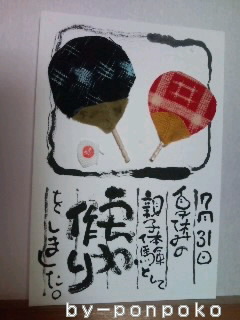 7月31日
夏休みの
親子体験として
うちわ
作り
をしました。
by-ponpoko